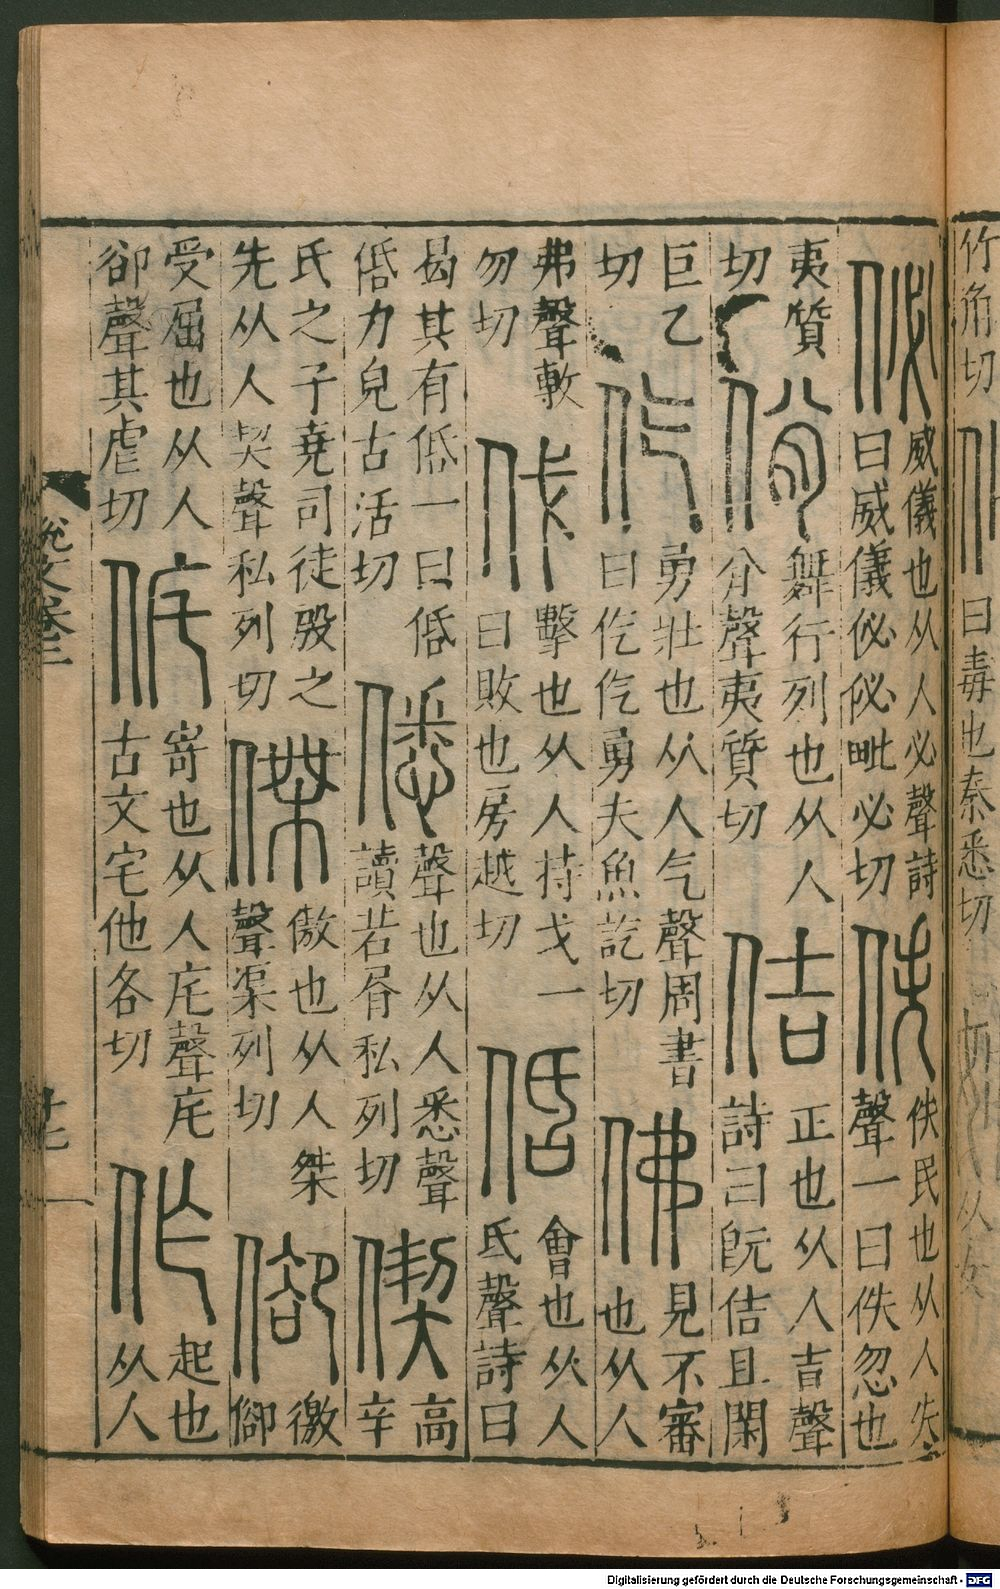 竹角切
曰毒也秦悉切
佖
威儀也从人必聲詩
曰威儀佖佖毗必切
佚
佚民也从人失
聲一曰佚忽也
夷質
切
佾
舞行列也从人
㕣聲夷質切
佶
正也从人吉聲
詩曰既佶且閑
巨乙
切
仡
勇壯也从人气聲周書
曰仡仡勇夫魚訖切
佛
見不審
也从人
弗聲敷
勿切
伐
擊也从人持戈一
曰敗也房越切
佸
會也从人
𠯑聲詩曰
曷其有佸一曰佸
佸力皃古活切
僁
聲也从人悉聲
讀若屑私列切
偰
高
辛
氏之子堯司徒殷之
先从人契聲私列切
傑
傲也从人桀
聲渠列切
㕁
徼
御
受屈也从人
卻聲其虐切
侂
寄也从人㡯聲㡯
古文宅他各切
作
起也
从人
說文卷三
十七
Digitalisierung gefördert durch die Deutsche Forschungsgemeinschaft - DFG